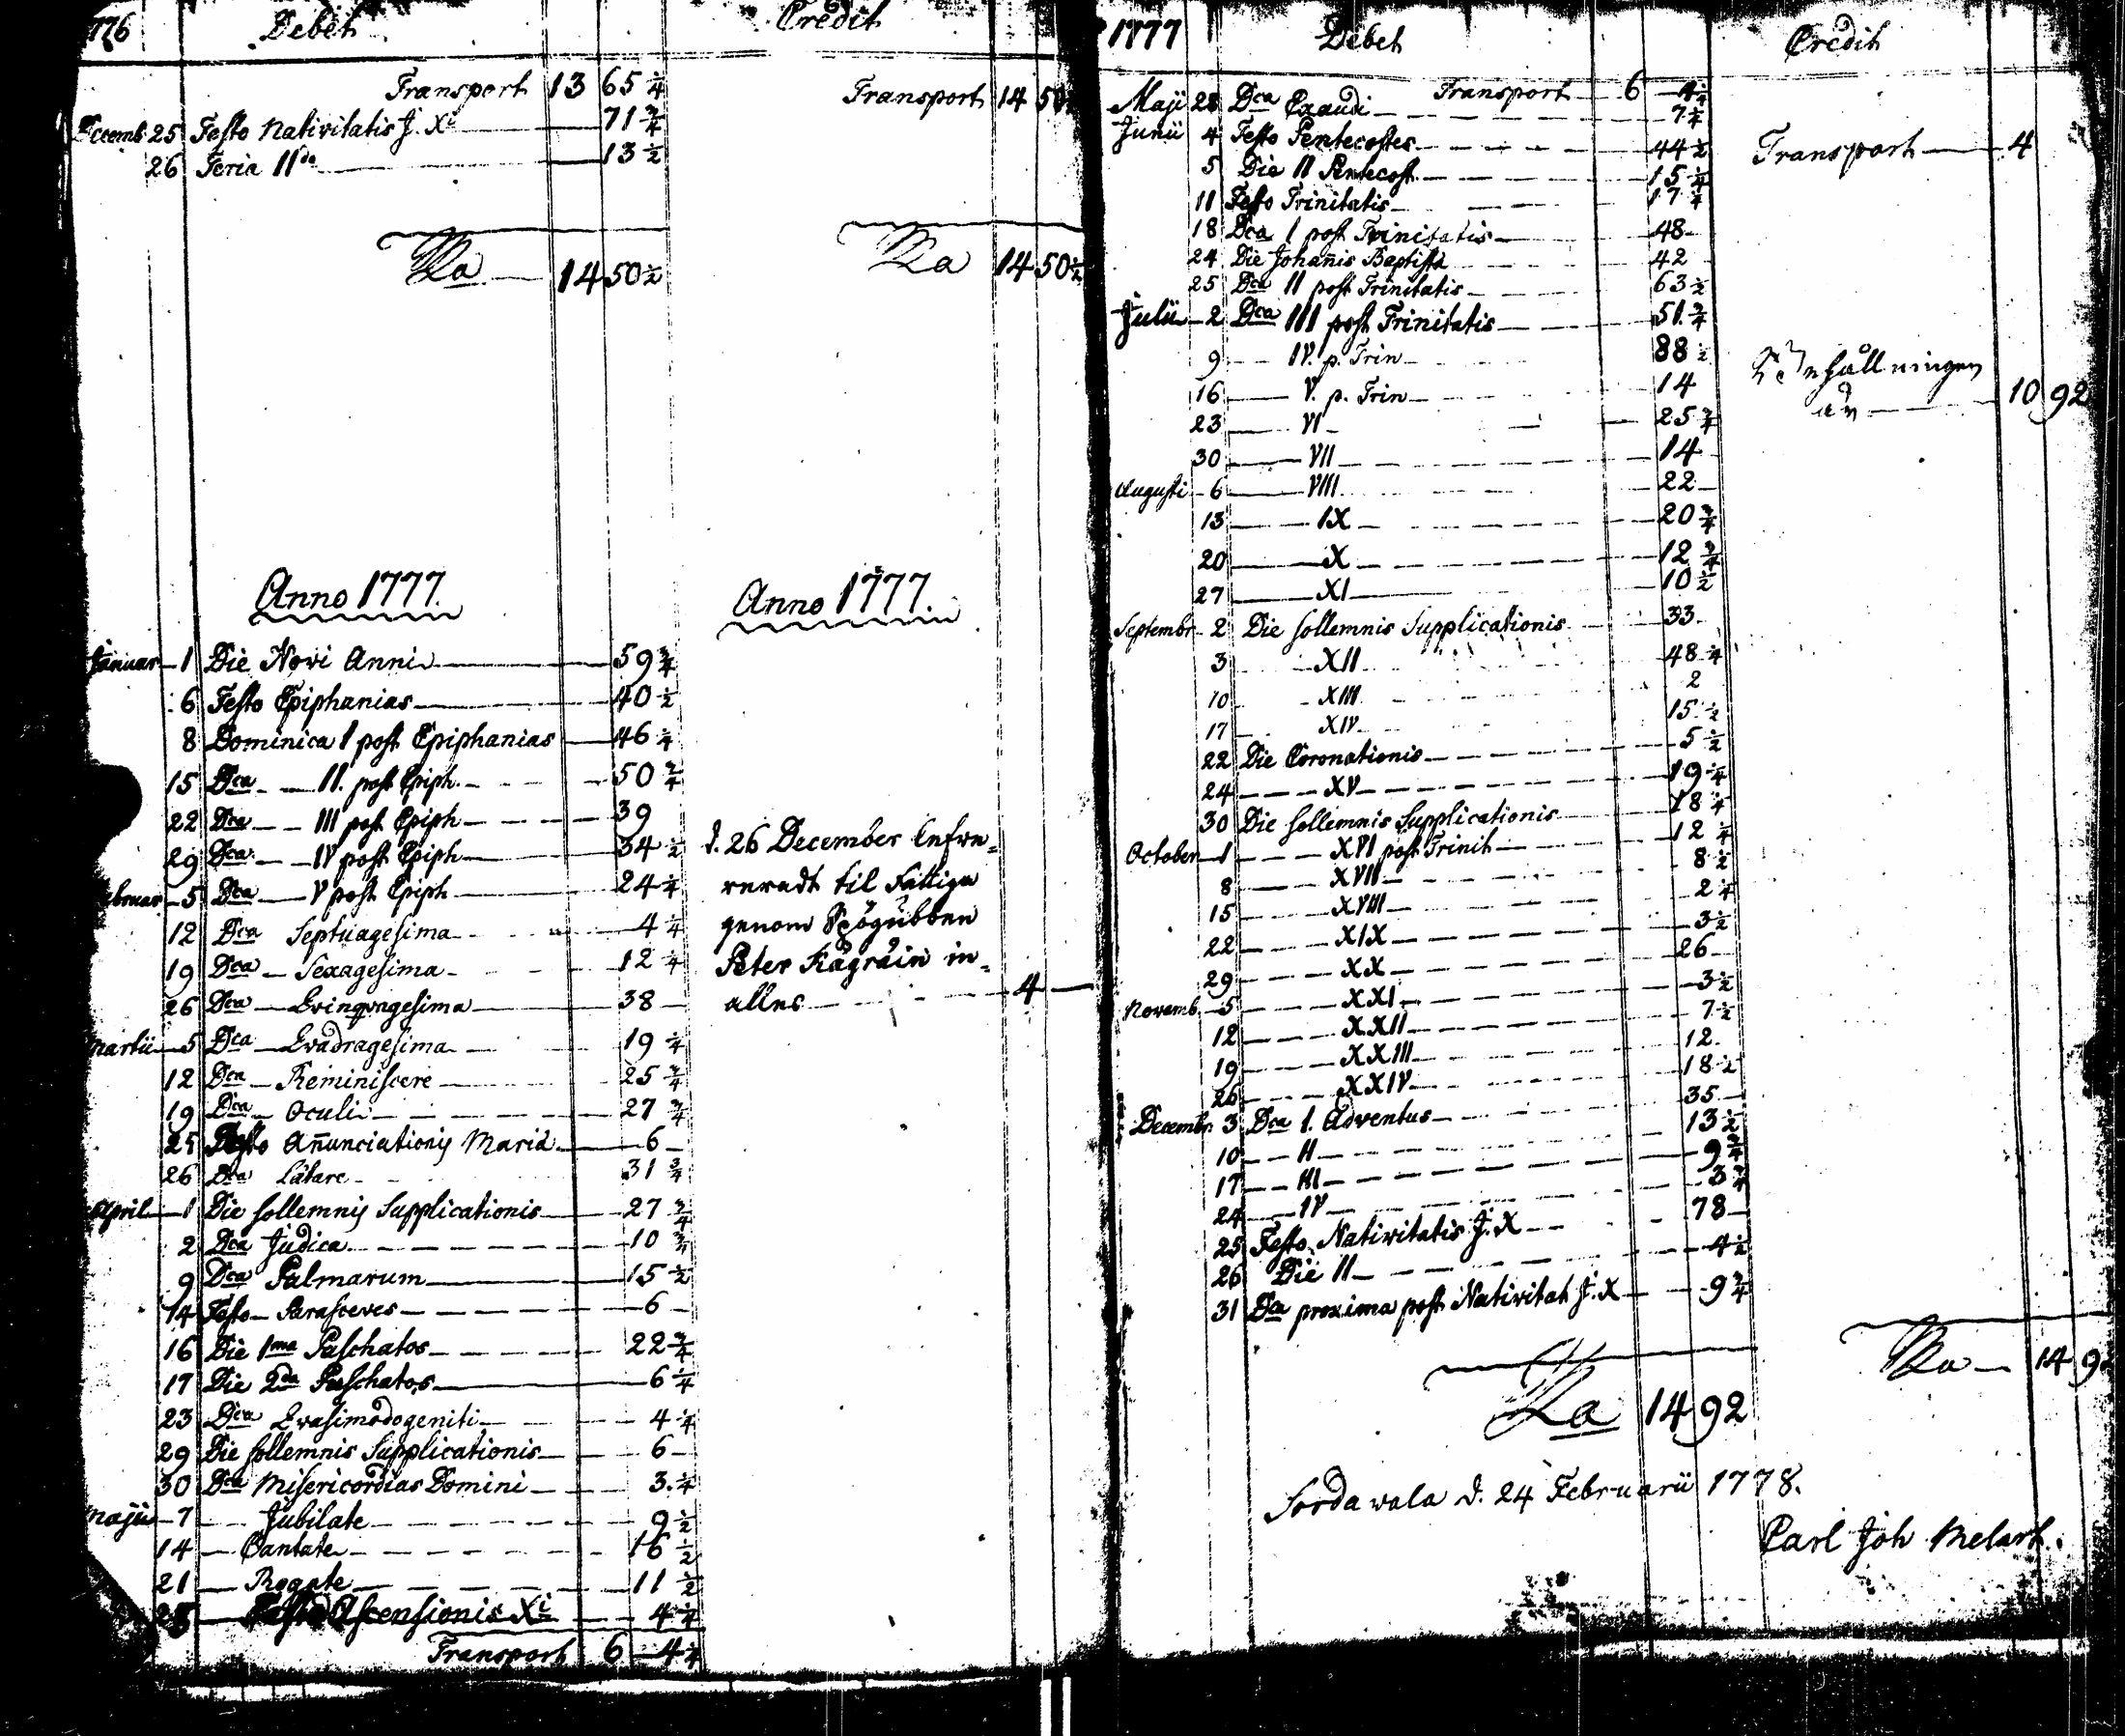 1776 Debet Credit
Transport 13 65 1/4
Transport 14 50
Decemb 25 Festo Nativitatis J. Xi 71 3/4
26 Feria IIda 13 1/2
Sa 14 50 1/2
Sa 14 50 1/2
Anno 1777.
Anno 1777.
Januar 1 Die Novi Anni 59 3/4
6 Festo Epiphanias 40 1/2
8 Dominica I post Epiphanias 46 1/4
15 Dca II. post Epiph. 50 3/4
22 Dca III post Epiph 39
29 Dca IV post Epiph 34 1/2
Februar 5 Dca V post Epiph 24 1/4
12 Dca Septuagesima 4 1/4
19 Dca Sexagesima 12 1/4
26 Dca Qvinqvagesima 38
Martii 5 Dca Qvadragesima 19 1/4
12 Dca Reminiscere 25 3/4
19 Dca Oculi 27 3/4
25 Festo Anunciationis Mariä 6
26 Dca Lätare 31 3/4
April 1 Die sollemnis Supplicationis 27 3/4
2 Dca Judica 10 3/4
9 Dca Palmarum 15 1/2
14 Festo Parasceves 6
16 Die 1ma Paschatos 22 3/4
17 Die 2da Paschatos 6 1/4
23 Dca Qvasimodogeniti 4 1/4
29 Die sollemnis Supplicationis 6
30 Dca Misericordias Domini 3 1/4
Maji 7 Jubilate 9 1/2
14 Cantate 16 1/2
21 Rogate 11 1/2
Festo Ascensionis Xi 4 1/4
Transport 6 4 1/4
d. 26 December
til Fattiga
genom
Peter in=
alles 4
1777 Debet Credit
Transport 6 4 1/4
Maji 28 Dca Exaudi 7 1/4
Junii 4 Festo Pentecostes 44 1/2
5 Die II Pentecost 15 1/4
11 Festo Trinitatis 17 1/4
18 Dca I post Trinitatis 48
24 Die Johanis Baptistä 42
25 Dca II post Trinitatis 63 1/2
Julii 2 Dca III post Trinitatis 51 3/4
9 IV. p. Trin 88 1/2
16 V. p. Trin 14
23 VI 25 3/4
30 VII 14
Augusti 6 VIII 22
13 IX 20 3/4
20 X 12 3/4
27 XI 10 1/2
Septembr 2 Die sollemnis Supplicationis 33
3 XII 48 1/4
10 XIII 2
17 XIV 15 1/2
22 Die Coronationis 5 1/2
24 XV 19 1/4
30 Die sollemnis Supplicationis 18 1/4
October 1 XVI post Trinit 12 1/4
8 XVII 8 1/2
15 XVIII 2 1/4
22 XIX 3 1/2
29 XX 26
Novemb 5 XXI 3 1/2
12 XXII 7 1/2
19 XXIII 12
26 XXIV 18 1/2
Decembr 3 Dca I. Adventus 35
10 II 13 1/2
17 III 9 3/4
24 IV 3 3/4
25 Festo Nativitatis J. X 78
26 Die II 4 1/2
31 Dca proxima post Nativitat J. X 9 3/4
Sa 14 92
Transport 4
Behållningen
är 10 92
Sa 14 92
Sordavala d. 24 Februarii 1778.
Carl Joh Melart.